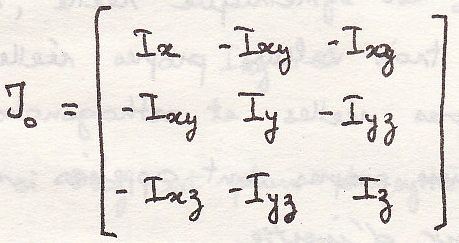 Ix -Ixy -Ixz
J₀ = -Ixy Iy -Iyz
-Ixz -Iyz Iz